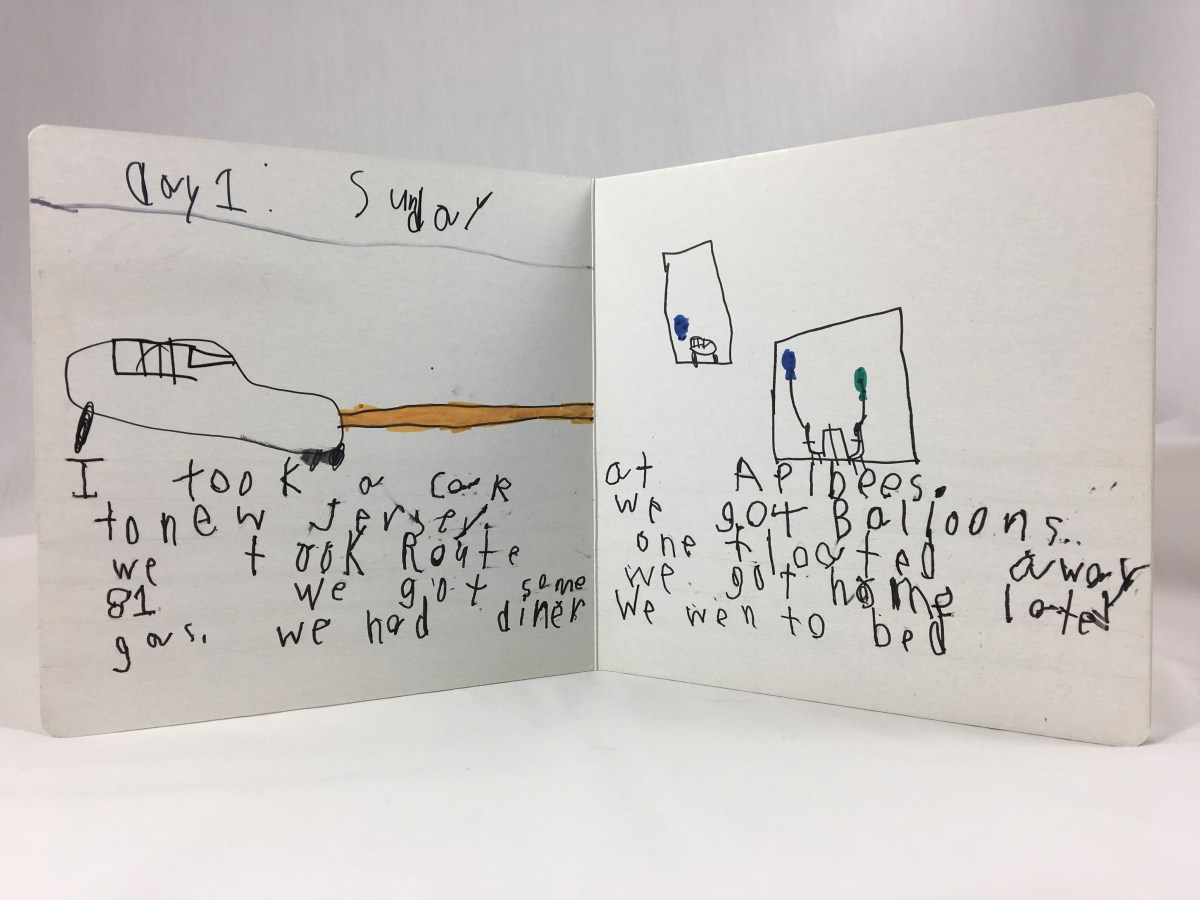 day 1: Sunday
I took a car
to new Jersey
we took Route
81 we got some
gas. we had diner
at Aplbees.
we got Balloons.
one floated away
we got home later
we went to bed